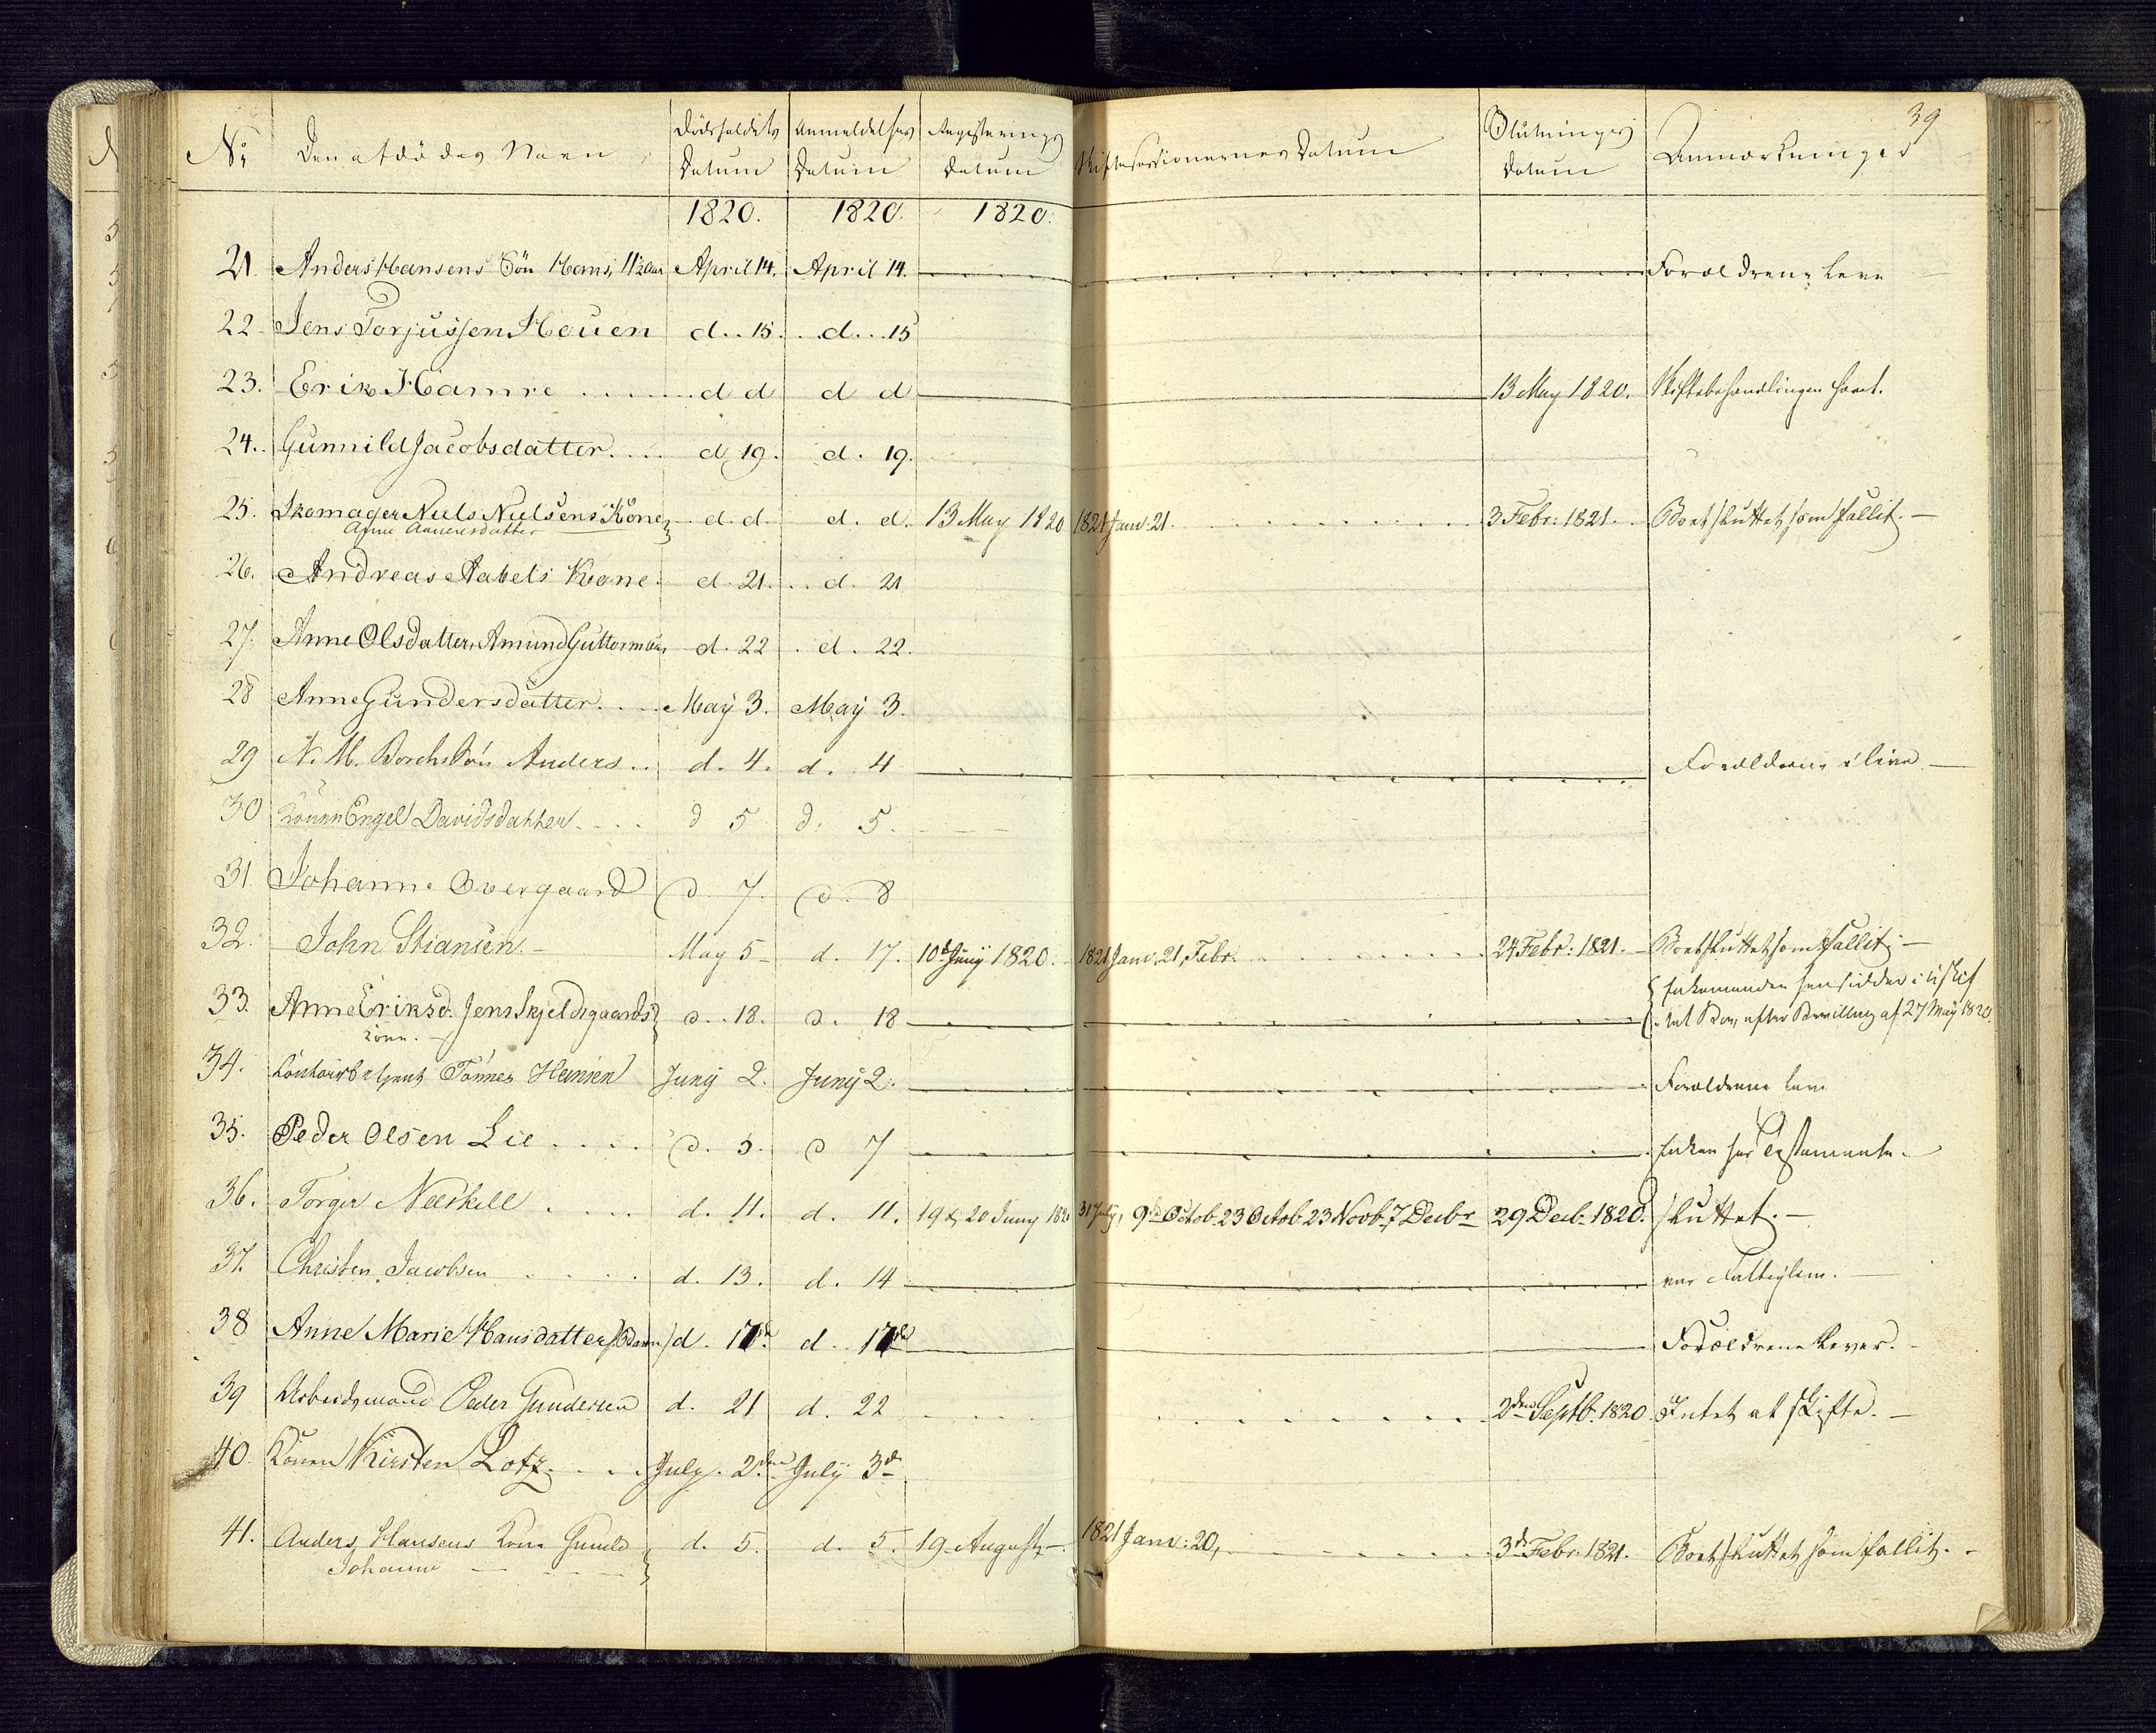 39
No Den afdødes Navn Dødsfaldets Datum Anmeldelses Datum Registerings Datum Skiftesessionernes Datum Slutnings Datum Anmærkninger
1820. 1820. 1820.
21. Anders Hansens Søn Hans, 11½ Aar April 14. April 14. Forældrene leve
22. Jens Torjussen Houen d. 15. d. 15
23. Erik Hamre d d d d 13 May 1820. Skiftebehandlingen hævet.
24. Gunnild Jacobsdatter d. 19. d. 19.
25. Skomager Niels Nielsens Kone d. d. d. d. 13 May 1820 1821 Janv: 21. 3 Febr: 1821. Boet sluttet som fallit.
Anne
26. Andreas Aabels Kone d. 21. d. 21
27. Anne Olsdatter, Amund Guttormsens d. 22 d. 22.
28 Anne Gundersdatter. May 3. May 3.
29 N. M. Borchs Søn Anders d. 4. d. 4 Forældrene i live
30 Konen Engel Davidsdatter d 5 d. 5.
31. Johanne Overgaard d. 7. d. 8
32. John Stiansen. May 5 d. 17. 10d Juny 1820. 1821 Janv. 21, Febr. 24 Febr: 1821. Boet sluttet som fallit.
33. Anne Eriksd. Jens Skjeldsgaards d. 18. d. 18 Enkemanden hensidder i uskif
Kone. tet Boe, efter Bevilling af 27 May 1820.
34. Tønnes Hansen Juny 2. Juny 2. Forældrene leve
35. Peder Olsen Lie d. 5. d 7 Enken har Testamente.
36. Torger Neerkill d. 11. d. 11. 19 & 20 Juny 1820 31 July, 9de Octob. 23 Octob. 23 Novb. 7 Decbr 29 Decb. 1820. sluttet.
37. Christen Jacobsen d. 13. d. 14 var Fattiglem.
38 Anne Marie Hansdatter (Barn) d. 17de d. 17de Forældrene lever.
39 Arbeidsmand Peder Gundersen d. 21 d. 22 2den Septb. 1820. Intet at skifte.
40. Konen Kirsten Lotz July. 2den July 3de
41. Anders Hansens Kone Gunild d. 5. d. 5. 19 August 1821 Janv: 20, 3de Febr. 1821. Boet sluttet som fallit.
Johanne